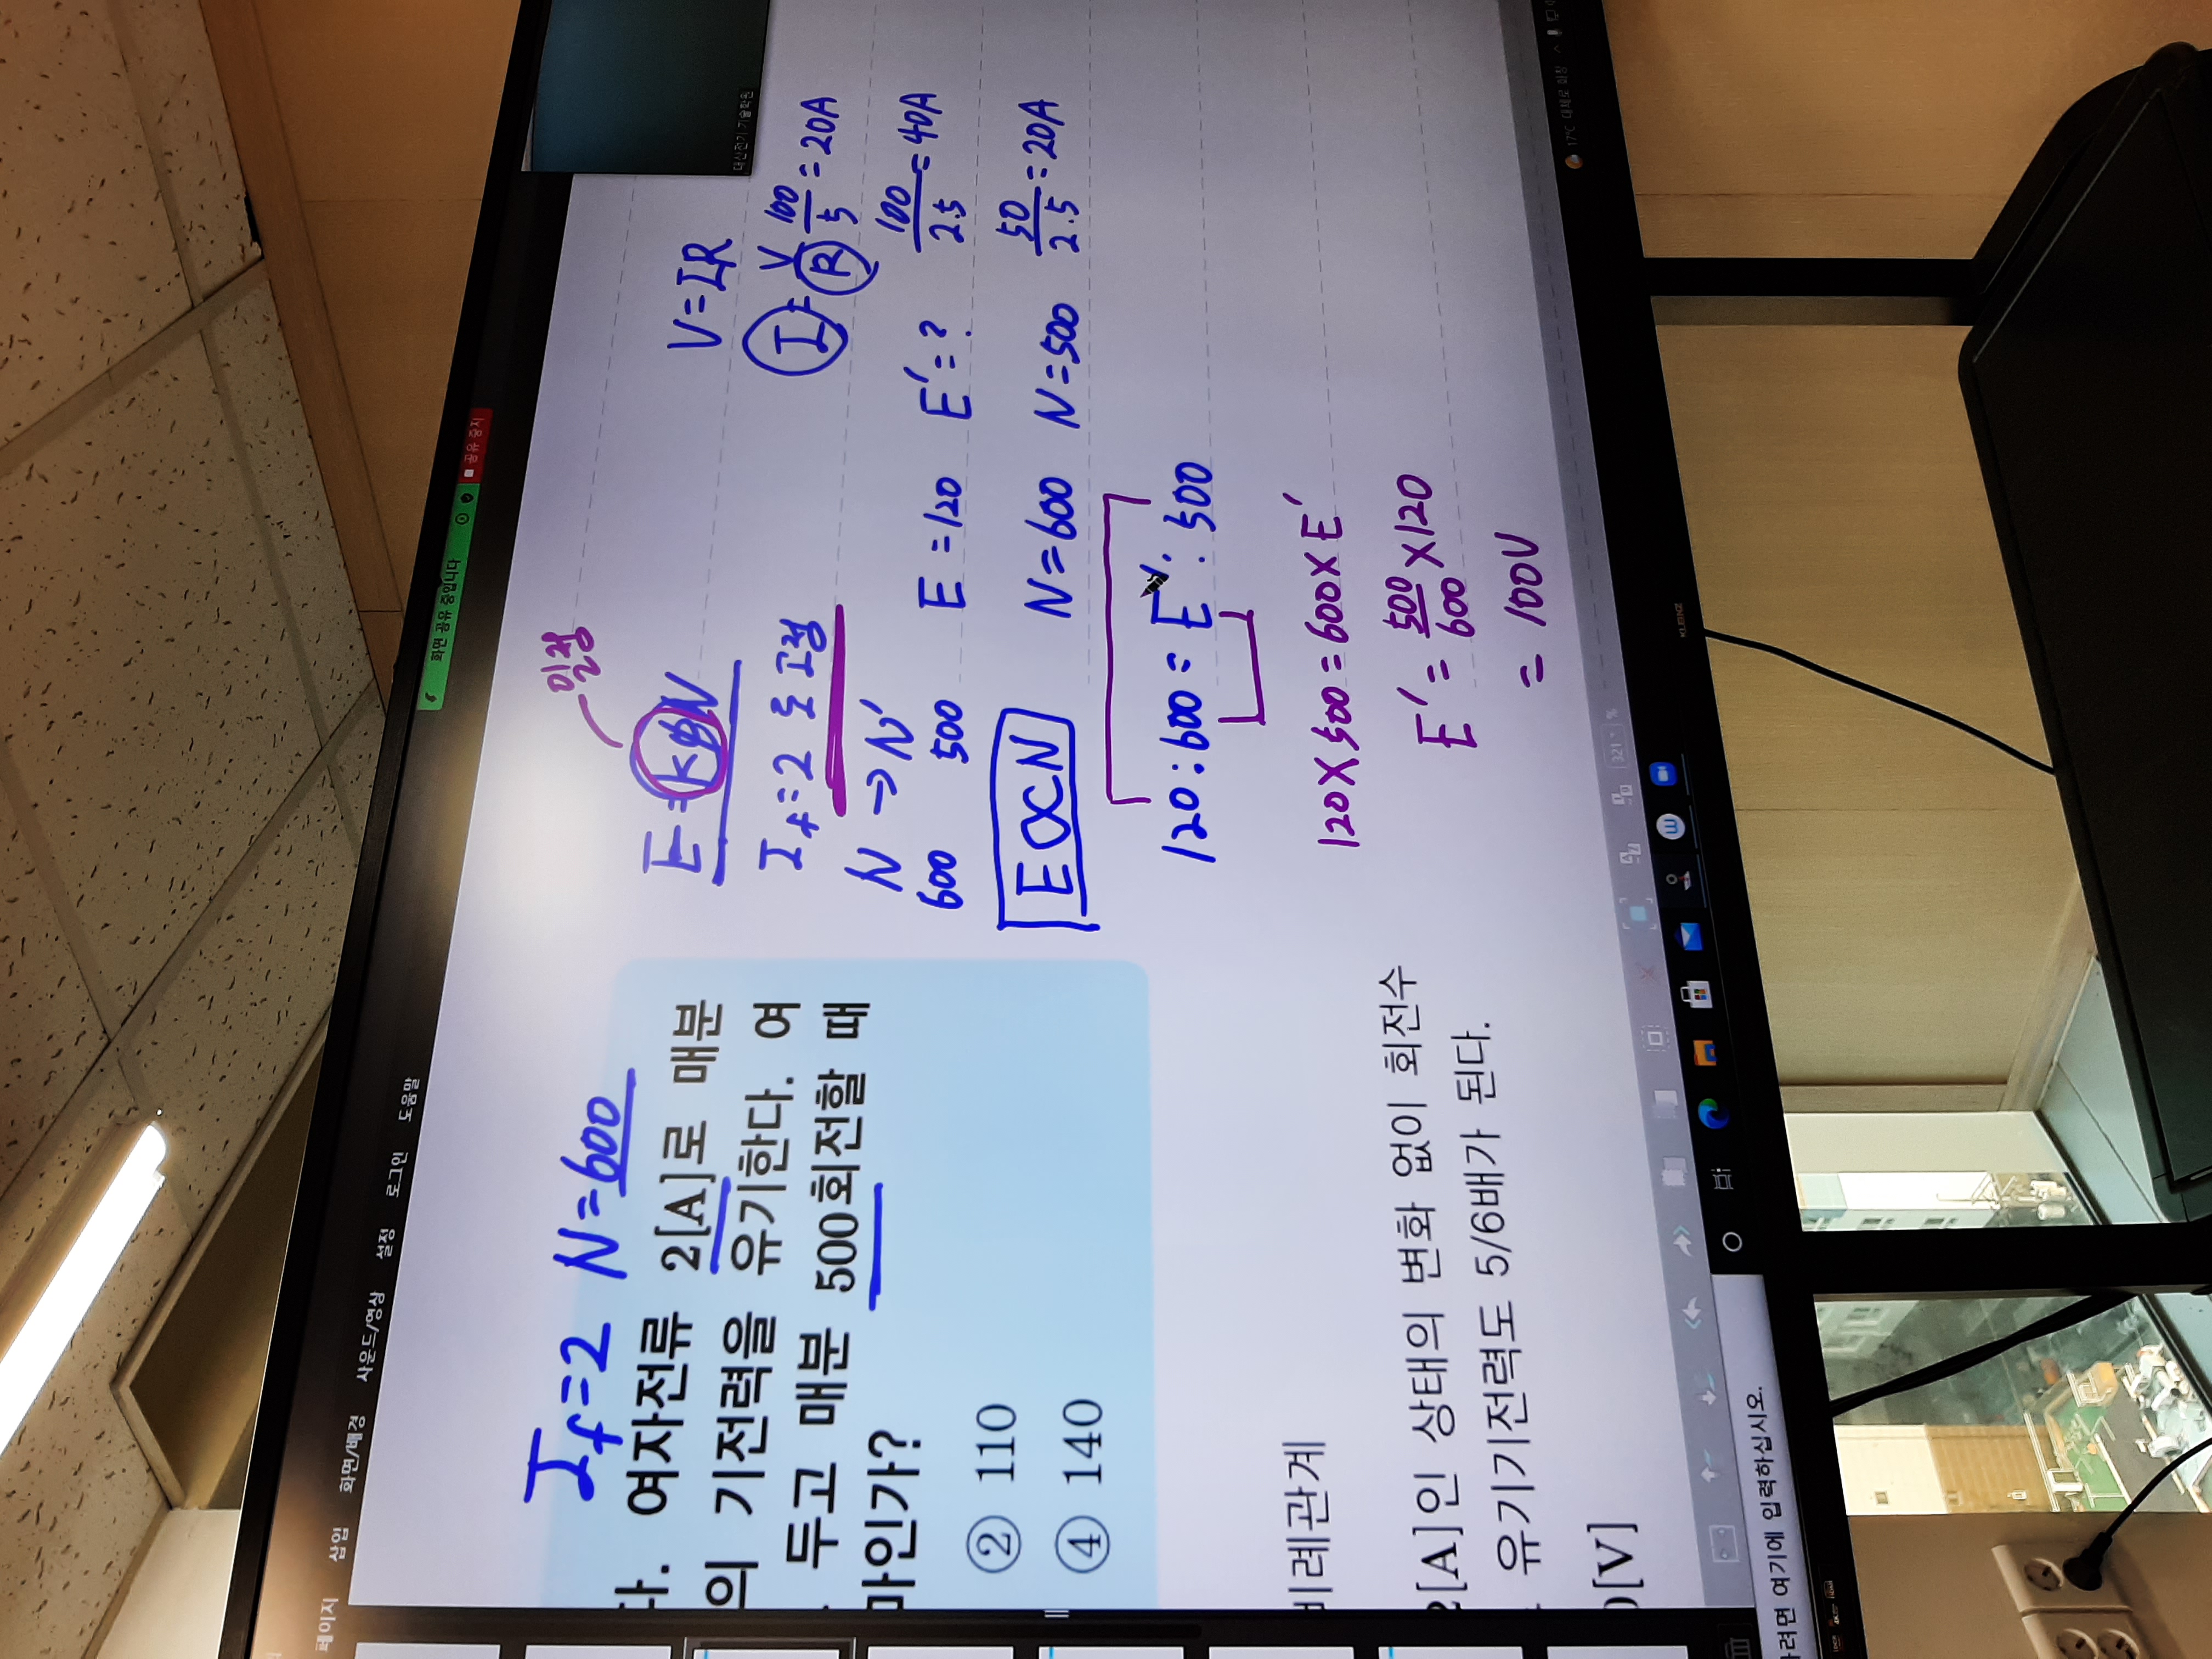 화면 공유 중입니다
공유 중지
페이지 삽입 화면/배경 사운드/영상 설정 로그인 도움말
대산전기 기술학원
I_f=2 N=600
여자전류 2[A]로 매분
의 기전력을 유기한다. 여
두고 매분 500회전할 때
마인가?
② 110
④ 140
비례관계
2[A]인 상태의 변화 없이 회전수
유기기전력도 5/6배가 된다.
[V]
일정
E=kφN
I_f=2 로 고정
N → N'
600 500
E∝N
E=120 E'=?
N=600 N=500
120:600=E':500
120×500=600×E'
E'=500/600×120
=100V
V=IR
I=V/R 100/5=20A
100/2.5=40A
50/2.5=20A
하려면 여기에 입력하십시오.
17°C 대체로 흐림